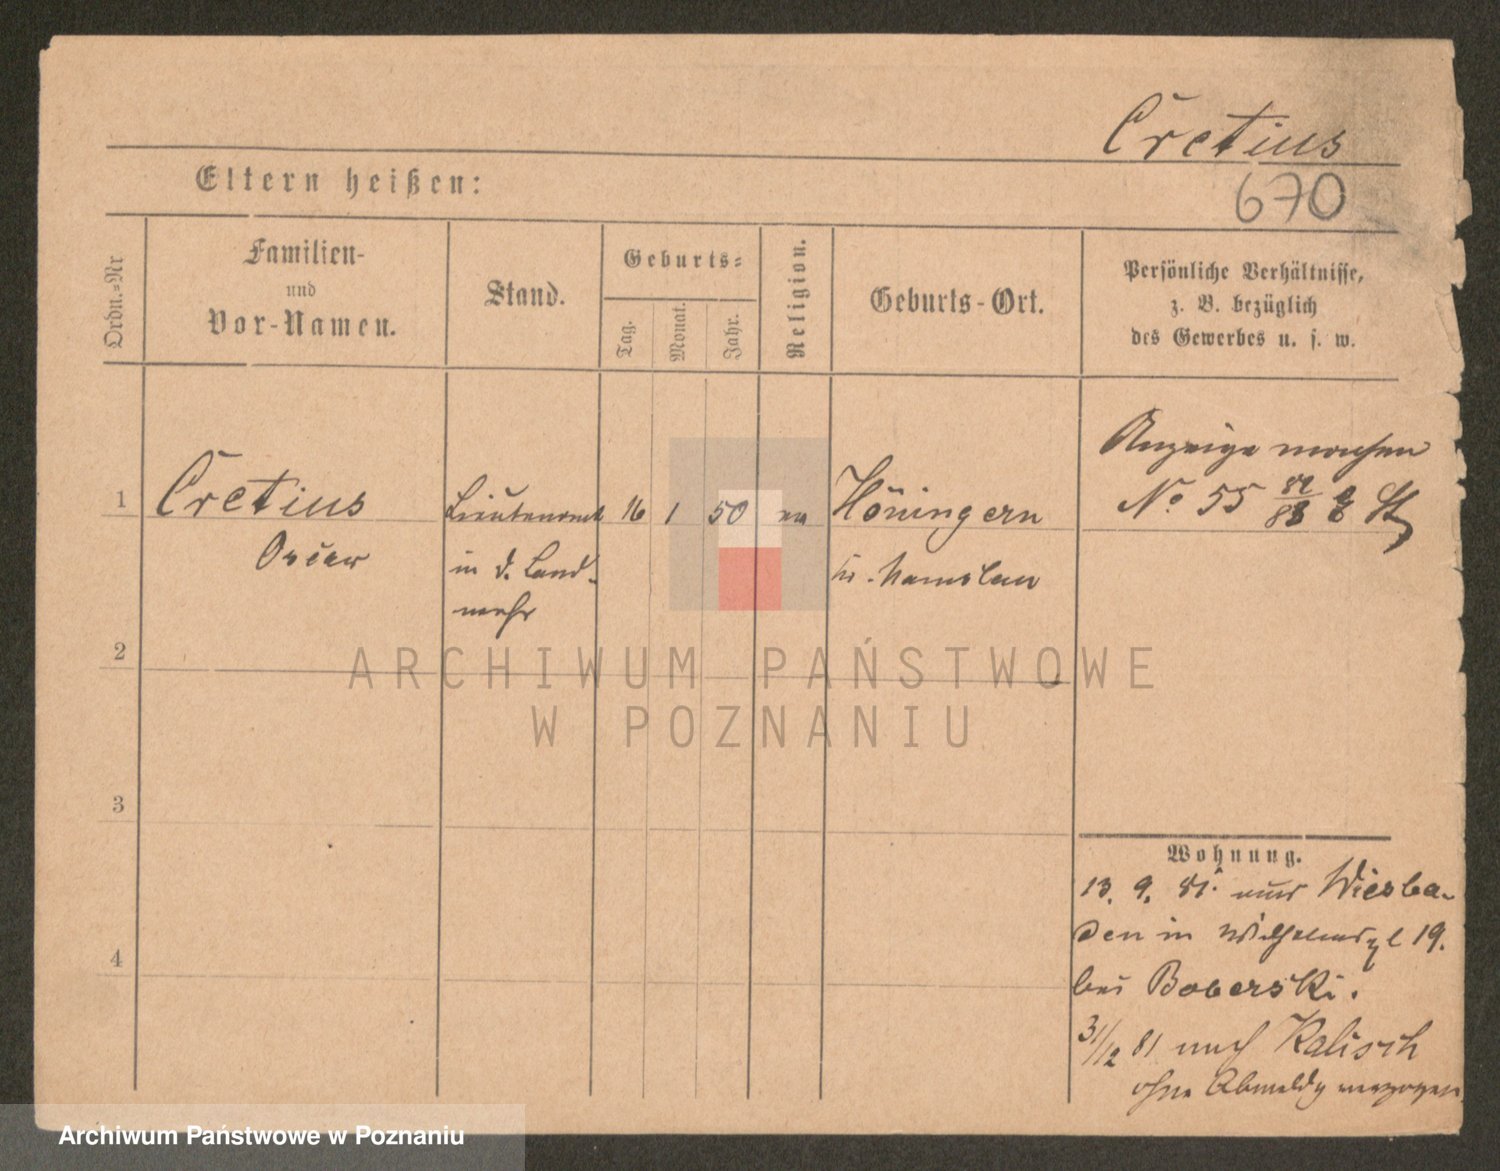 Cretius
Eltern heißen:
670
Ordn.-Nr
Familien-
und
Vor-Namen.
Stand.
Geburts-
Tag.
Monat.
Jahr.
Religion.
Geburts-Ort.
Persönliche Verhältnisse,
z. B. bezüglich
des Gewerbes u. s. w.
1
Cretius
Oscar
Lieutenant
in d. Land-
wehr
16
1
50
ev
Höningern
Kr. Namslau
Anzeige machen
No 55 82/83
2
3
4
Wohnung.
13. 9. 81. aus Wiesba-
den in Wilhelmspl 19.
bei Boberski.
31/12 81 nach Kalisch
ohne Abmeldg verzogen
ARCHIWUM PAŃSTWOWE
W POZNANIU
Archiwum Państwowe w Poznaniu